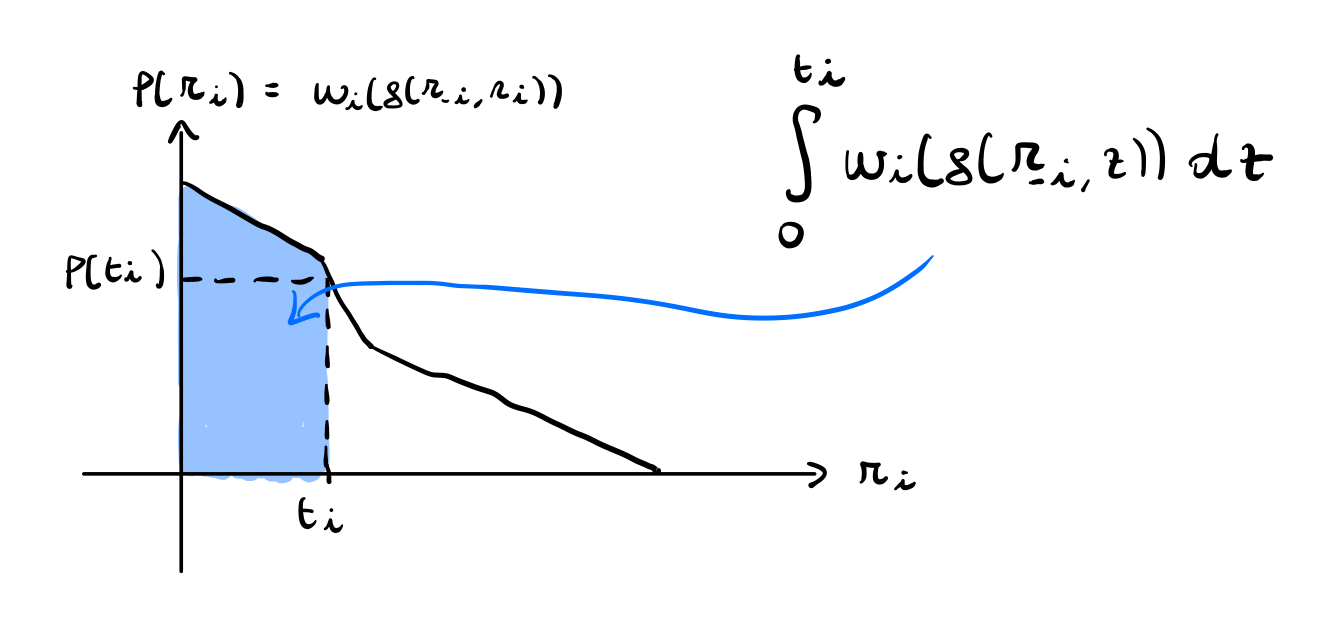 P(r_i) = w_i(g(r_{-i}, r_i))
t_i
∫ w_i(g(r_{-i}, z)) dz
0
P(t_i)
r_i
t_i